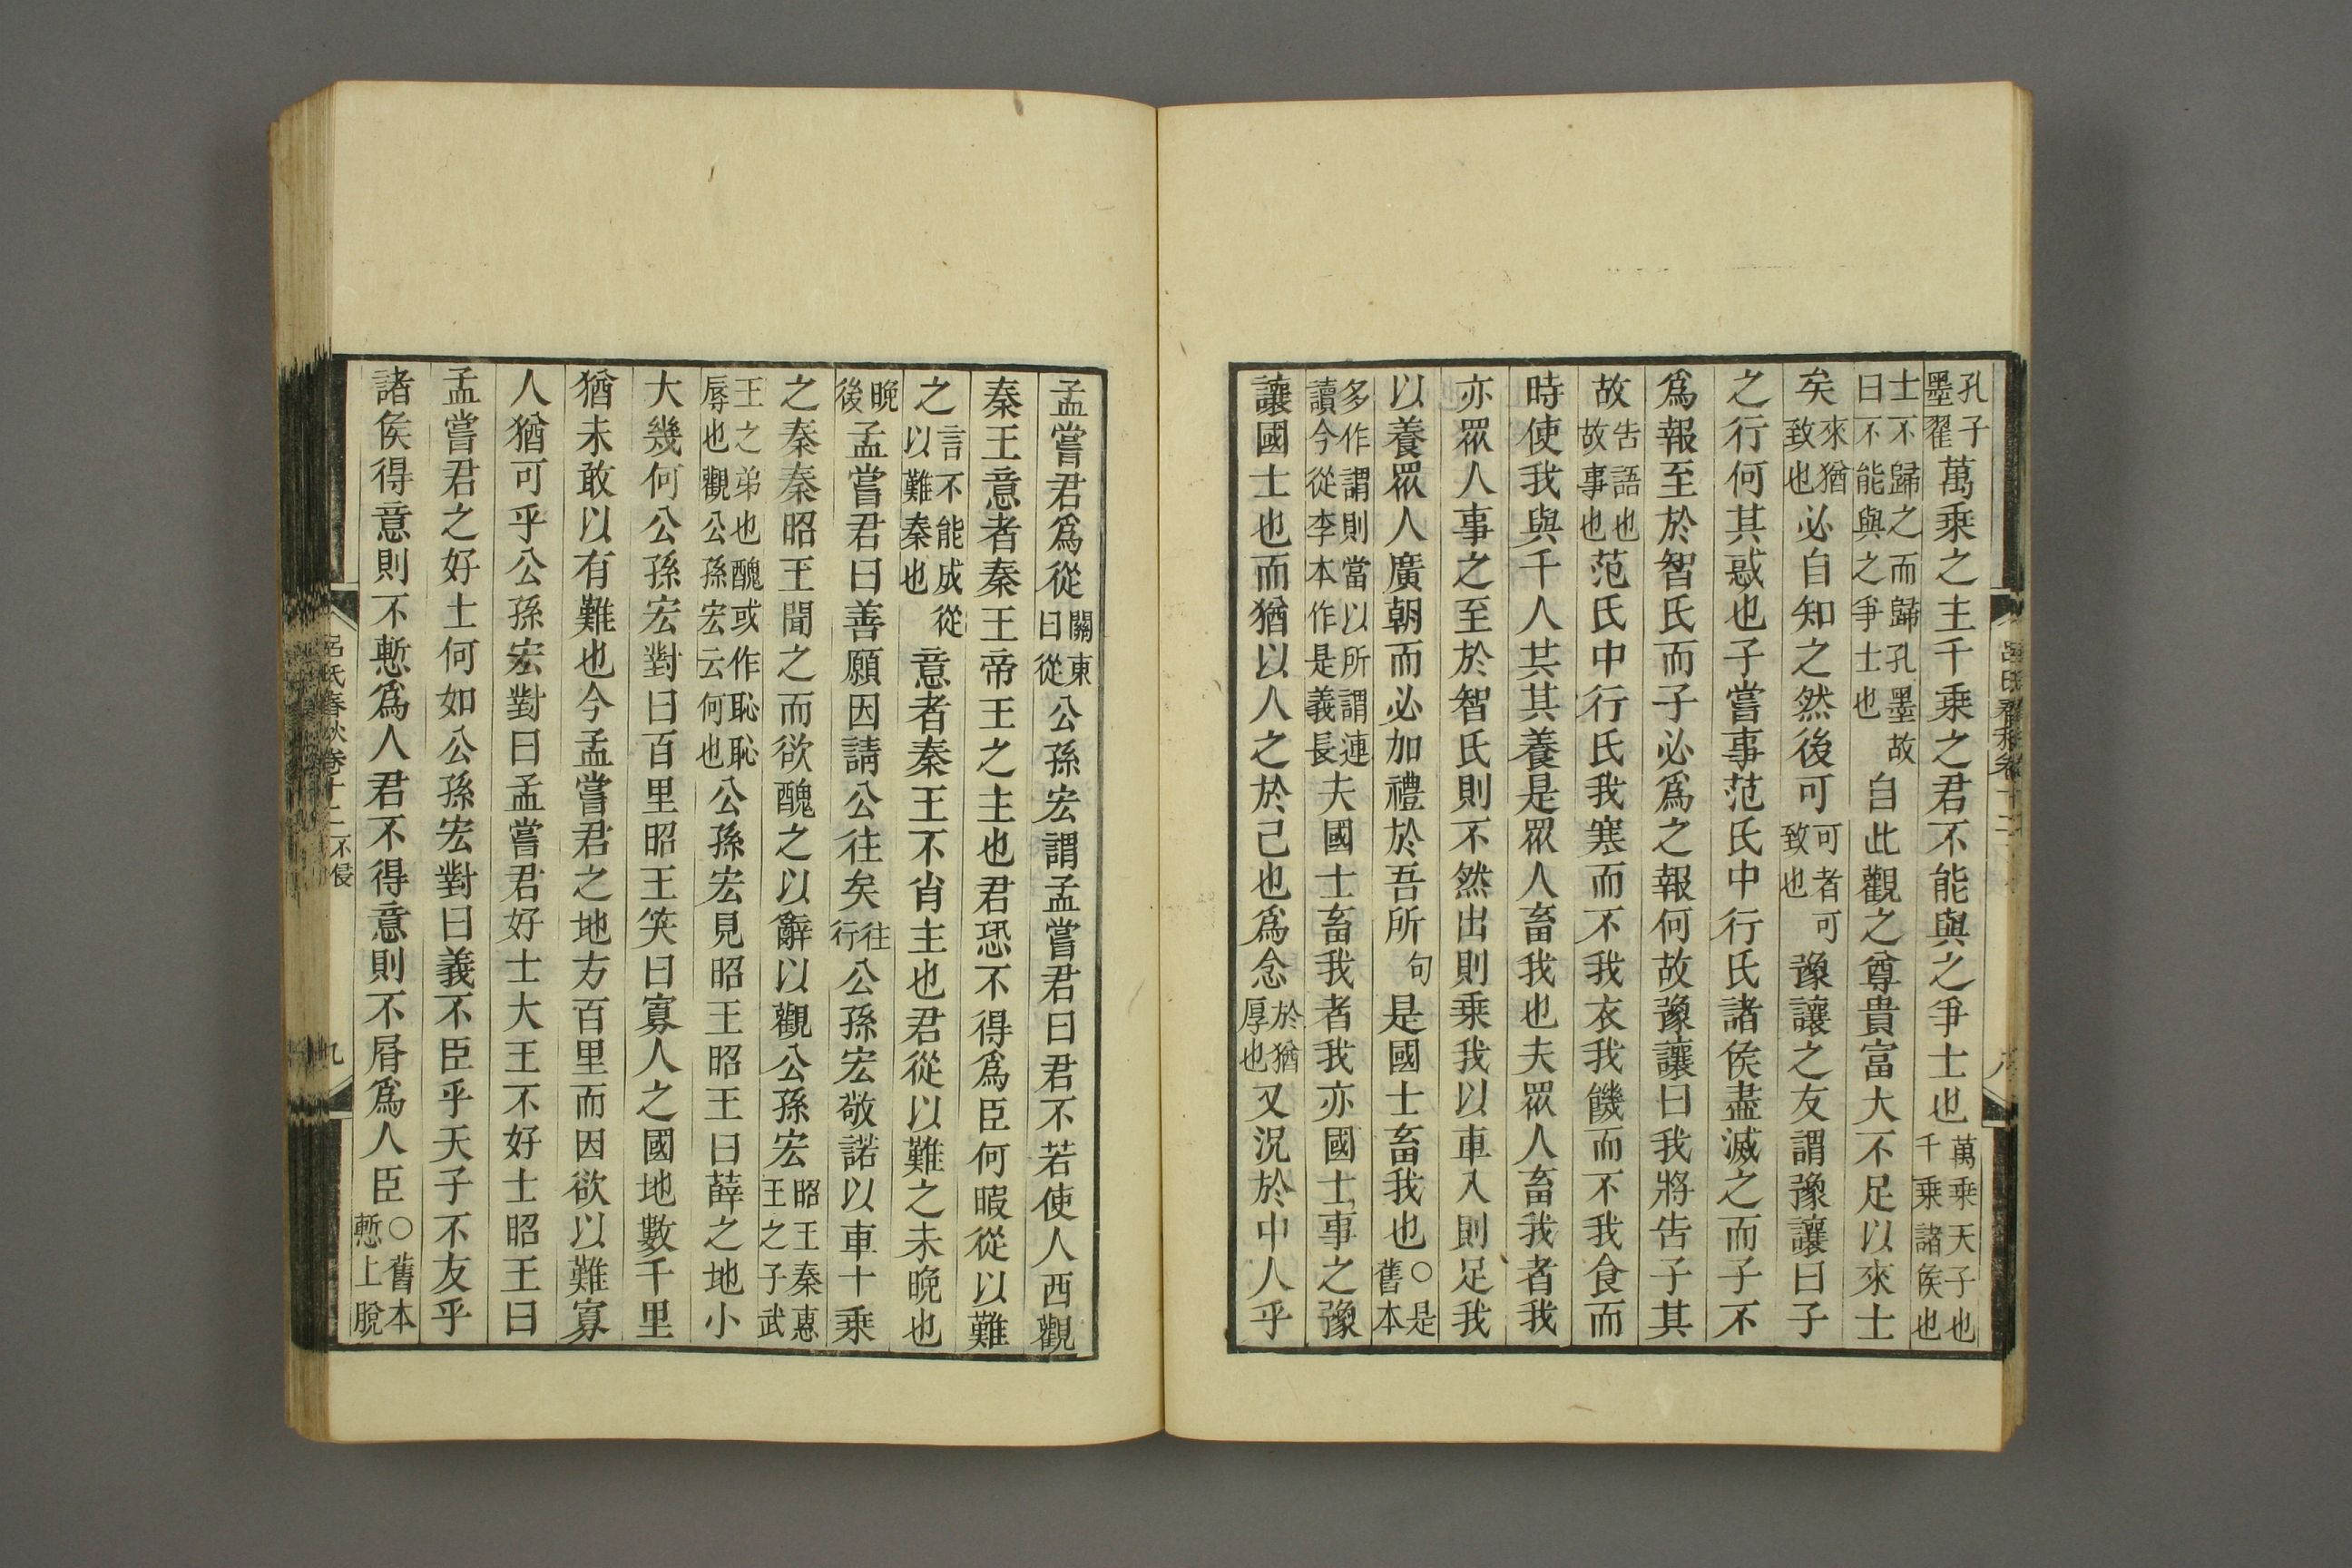 孔子墨翟萬乘之主千乘之君不能與之爭士也萬乘天子也千乘諸侯也
士不歸之而歸孔墨故曰不能與之爭士也自此觀之尊貴富大不足以來士
矣來猶致也必自知之然後可可者可致也豫讓之友謂豫讓曰子
之行何其惑也子嘗事范氏中行氏諸侯盡滅之而子不
爲報至於智氏而子必爲之報何故豫讓曰我將告子其
故告語也故事也范氏中行氏我寒而不我衣我饑而不我食而
時使我與千人共其養是眾人畜我也夫眾人畜我者我
亦眾人事之至於智氏則不然出則乘我以車入則足我
以養眾人廣朝而必加禮於吾所句是國士畜我也○是舊本
多作謂則當以所謂連讀今從李本作是義長夫國士畜我者我亦國士事之豫
讓國士也而猶以人之於己也爲念於猶厚也又況於中人乎
呂氏春秋卷十二
孟嘗君爲從關東曰從公孫宏謂孟嘗君曰君不若使人西觀
秦王意者秦王帝王之主也君恐不得爲臣何暇從以難
之言不能成從以難秦也意者秦王不肖主也君從以難之未晚也
晚後孟嘗君曰善願因請公往矣往行公孫宏敬諾以車十乘
之秦秦昭王聞之而欲醜之以辭以觀公孫宏昭王秦惠王之子武
王之弟也醜或作恥恥辱也觀公孫宏云何也公孫宏見昭王昭王曰薛之地小
大幾何公孫宏對曰百里昭王笑曰寡人之國地數千里
猶未敢以有難也今孟嘗君之地方百里而因欲以難寡
人猶可乎公孫宏對曰孟嘗君好士大王不好士昭王曰
孟嘗君之好士何如公孫宏對曰義不臣乎天子不友乎
諸侯得意則不慙爲人君不得意則不屑爲人臣○舊本慙上脫
呂氏春秋卷十二 不侵 九